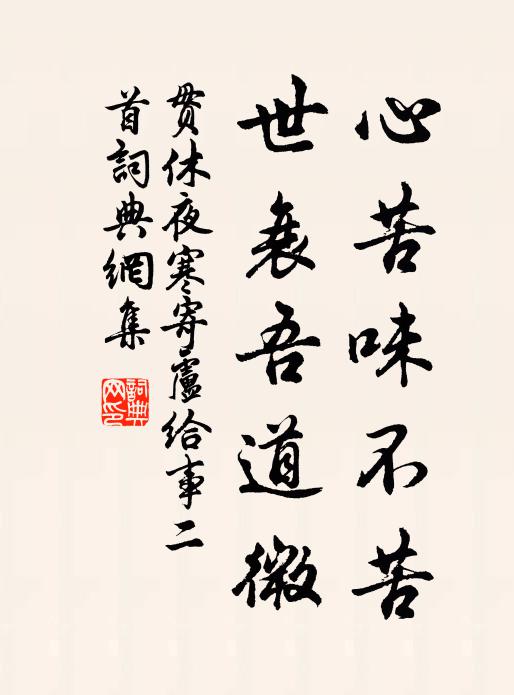 心苦味不苦
世衰吾道微
貫休夜寒寄盧給事二
首詞典網集
詞典
网印